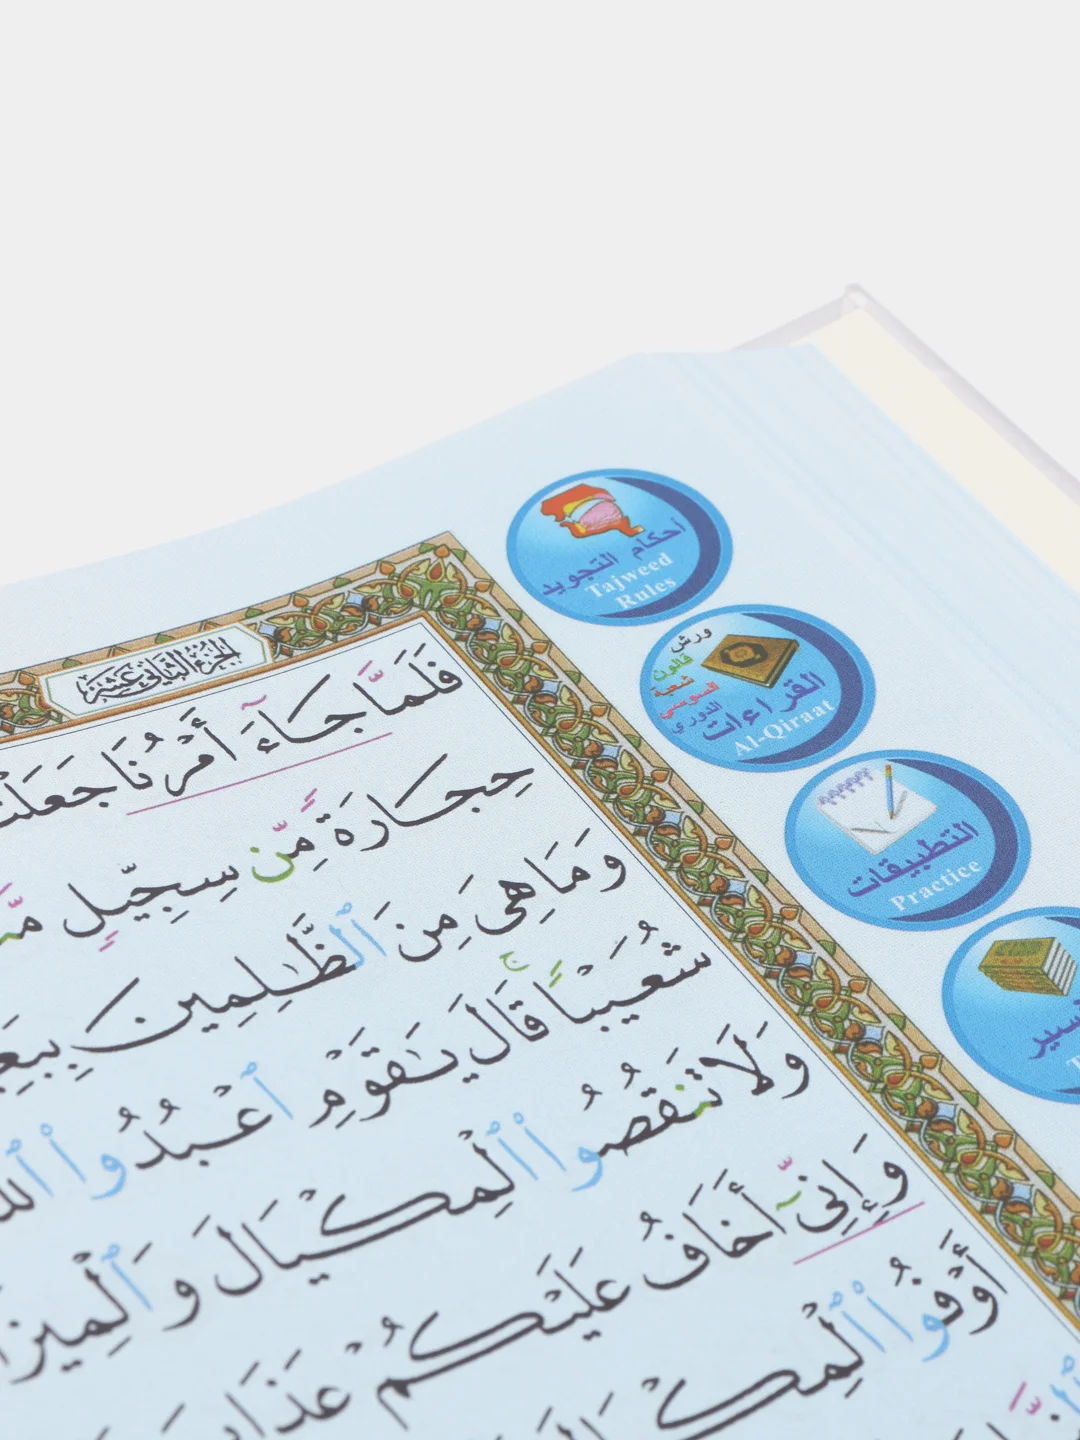 الجزء الثاني عشر
فَلَمَّا جَآءَ أَمْرُنَا جَعَلْنَ
حِجَارَةً مِّن سِجِّيلٍ مَّن
وَمَا هِىَ مِنَ ٱلظَّـٰلِمِينَ بِبَعِ
شُعَيْبًا ۚ قَالَ يَـٰقَوْمِ ٱعْبُدُوا۟ ٱلل
وَلَا تَنقُصُوا۟ ٱلْمِكْيَالَ وَٱلْمِيزَ
وَإِنِّىٓ أَخَافُ عَلَيْكُمْ عَذَابَ
أَوْفُوا۟ ٱلْمِكْيَالَ
أحكام التجويد
Tajweed
Rules
ورش
قالون
شعبة
السوسي
الدوري
القراءات
Al-Qiraat
التطبيقات
Practice